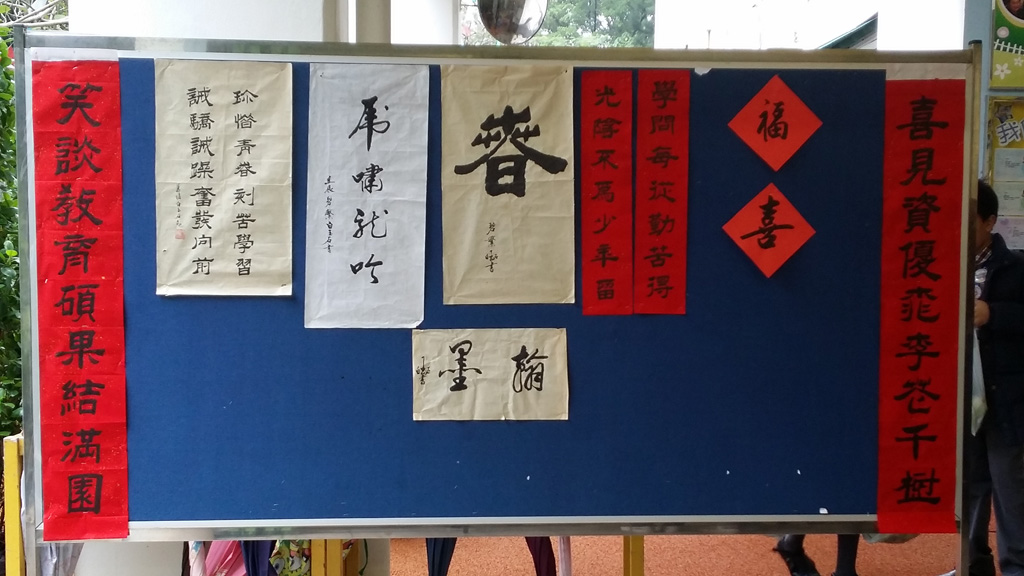 喜見資優桃李花千樹
福
喜
學問每從勤苦得
光陰不為少年留
春
虎嘯龍吟
珍惜青春刻苦學習
誡驕誡躁奮發向前
翰墨
笑談教育碩果結滿園
我